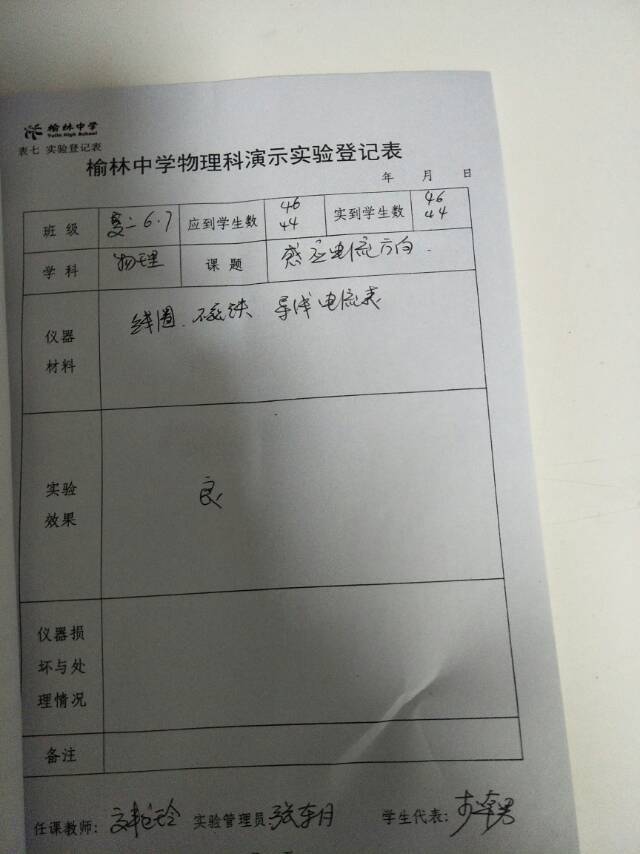 榆林中学
Yulin High School
表七 实验登记表
榆林中学物理科演示实验登记表
年 月 日
班 级 高二6.7 应到学生数 46 44 实到学生数 46 44
学 科 物理 课 题 感应电流方向.
仪器 材料 线圈. 磁铁、导线 电流表
实验 效果 良
仪器损 坏与处 理情况
备注
任课教师: 实验管理员: 张东月 学生代表: